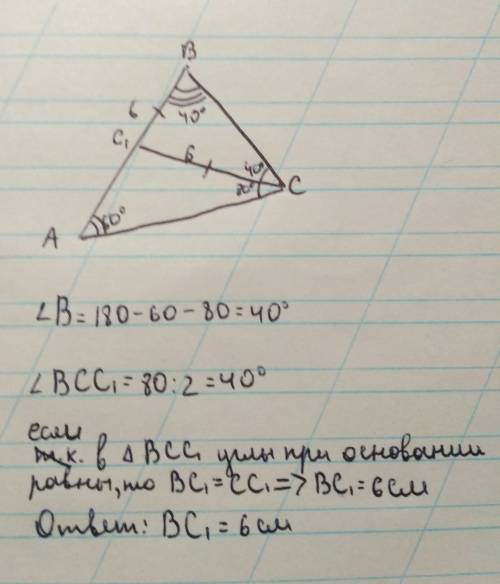 B
6
40°
C₁
6
40°
20°
C
A
60°
∠B = 180 - 60 - 80 = 40°
∠BCC₁ = 80 : 2 = 40°
если
т.к. в △BCC₁ углы при основании
равны, то BC₁ = CC₁ => BC₁ = 6 см
Ответ: BC₁ = 6 см